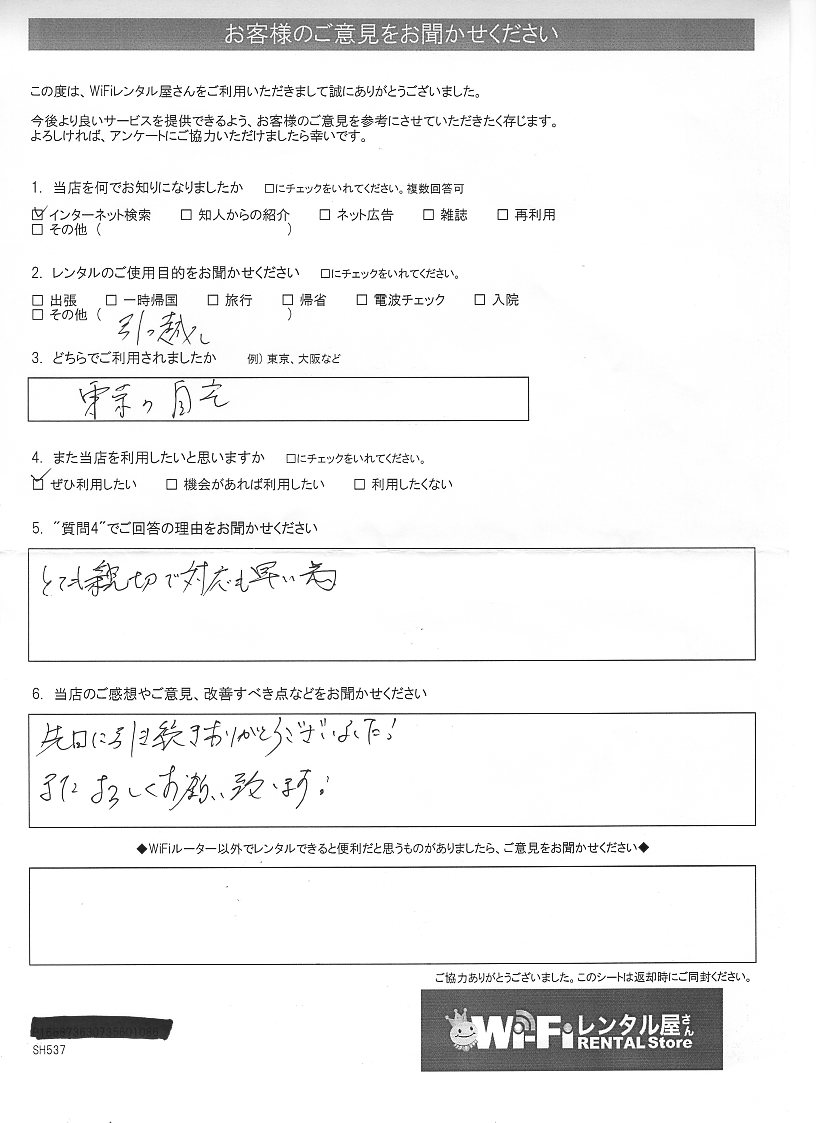 お客様のご意見をお聞かせください
この度は、WiFiレンタル屋さんをご利用いただきまして誠にありがとうございました。
今後より良いサービスを提供できるよう、お客様のご意見を参考にさせていただきたく存じます。
よろしければ、アンケートにご協力いただけましたら幸いです。
1. 当店を何でお知りになりましたか □にチェックをいれてください。複数回答可
☑ インターネット検索 □ 知人からの紹介 □ ネット広告 □ 雑誌 □ 再利用
□ その他 ( )
2. レンタルのご使用目的をお聞かせください □にチェックをいれてください。
□ 出張 □ 一時帰国 □ 旅行 □ 帰省 □ 電波チェック □ 入院
□ その他 ( )
引っ越し
3. どちらでご利用されましたか 例) 東京、大阪など
東京の自宅
4. また当店を利用したいと思いますか □にチェックをいれてください。
☑ ぜひ利用したい □ 機会があれば利用したい □ 利用したくない
5. "質問4"でご回答の理由をお聞かせください
とても親切で対応も早い為
6. 当店のご感想やご意見、改善すべき点などをお聞かせください
先日に引き続きありがとうございました!
また よろしくお願い致します!
◆WiFiルーター以外でレンタルできると便利だと思うものがありましたら、ご意見をお聞かせください◆
ご協力ありがとうございました。このシートは返却時にご同封ください。
SH537
Wi-Fiレンタル屋さん
RENTAL Store